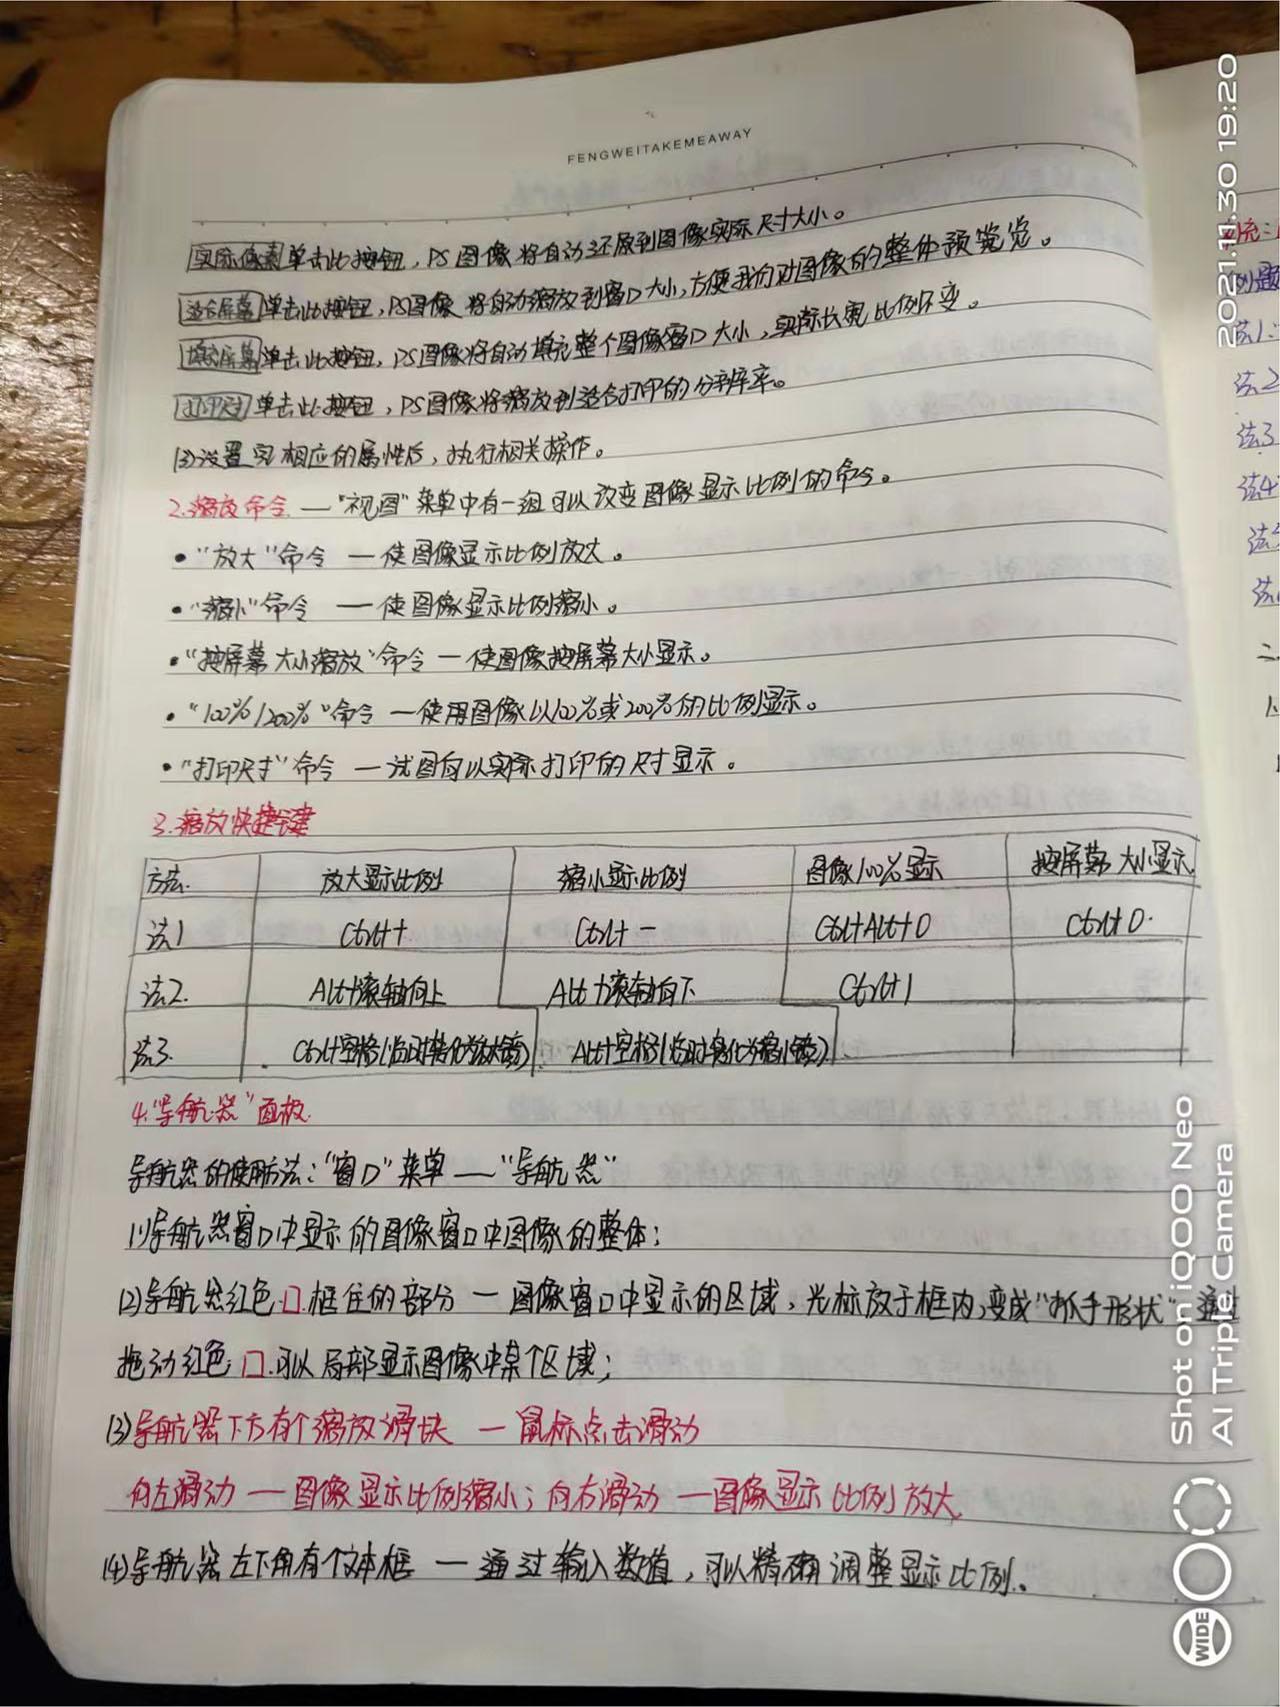 FENGWEITAKEMEAWAY
实际像素 单击此按钮，PS图像将自动还原到图像实际尺寸大小。
适合屏幕 单击此按钮，PS图像将自动缩放到窗口大小，方便我们对图像的整体预览览。
填充屏幕 单击此按钮，PS图像将自动填充整个图像窗口大小，实际长宽比例不变。
打印尺寸 单击此按钮，PS图像将缩放到适合打印的分辨率。
(3)设置完相应的属性后，执行相关操作。
2.缩放命令 — "视图"菜单中有一组可以改变图像显示比例的命令。
• "放大"命令 — 使图像显示比例放大。
• "缩小"命令 — 使图像显示比例缩小。
• "按屏幕大小缩放"命令 — 使图像按屏幕大小显示。
• "100%/200%"命令 — 使用图像以100%或200%的比例显示。
• "打印尺寸"命令 — 试图向以实际打印的尺寸显示。
3.缩放快捷键
方法. 放大显示比例 缩小显示比例 图像100%显示 按屏幕大小显示
法1 Ctrl++ Ctrl+- Ctrl+Alt+0 Ctrl+0.
法2. Alt+滚轴向上 Alt+滚轴向下 Ctrl+1
法3. Ctrl+空格(临时转化为放大镜) Alt+空格(临时转化为缩小镜)
4."导航器"面板.
导航器的使用方法："窗口"菜单 — "导航器"
(1)导航器窗口中显示的图像窗口中图像的整体；
(2)导航器红色口.框住的部分 — 图像窗口中显示的区域，光标放于框内，变成"抓手形状" 通过
拖动红色口.可以局部显示图像中某个区域；
(3)导航器下方有个缩放滑块 — 鼠标点击滑动
向左滑动 — 图像显示比例缩小；向右滑动 — 图像显示比例放大
(4)导航器左下角有个文本框 — 通过输入数值，可以精确调整显示比例。
法1.
法2
法3
法4
2021.11.30 19:20
Shot on iQOO Neo
AI Triple Camera
WIDE